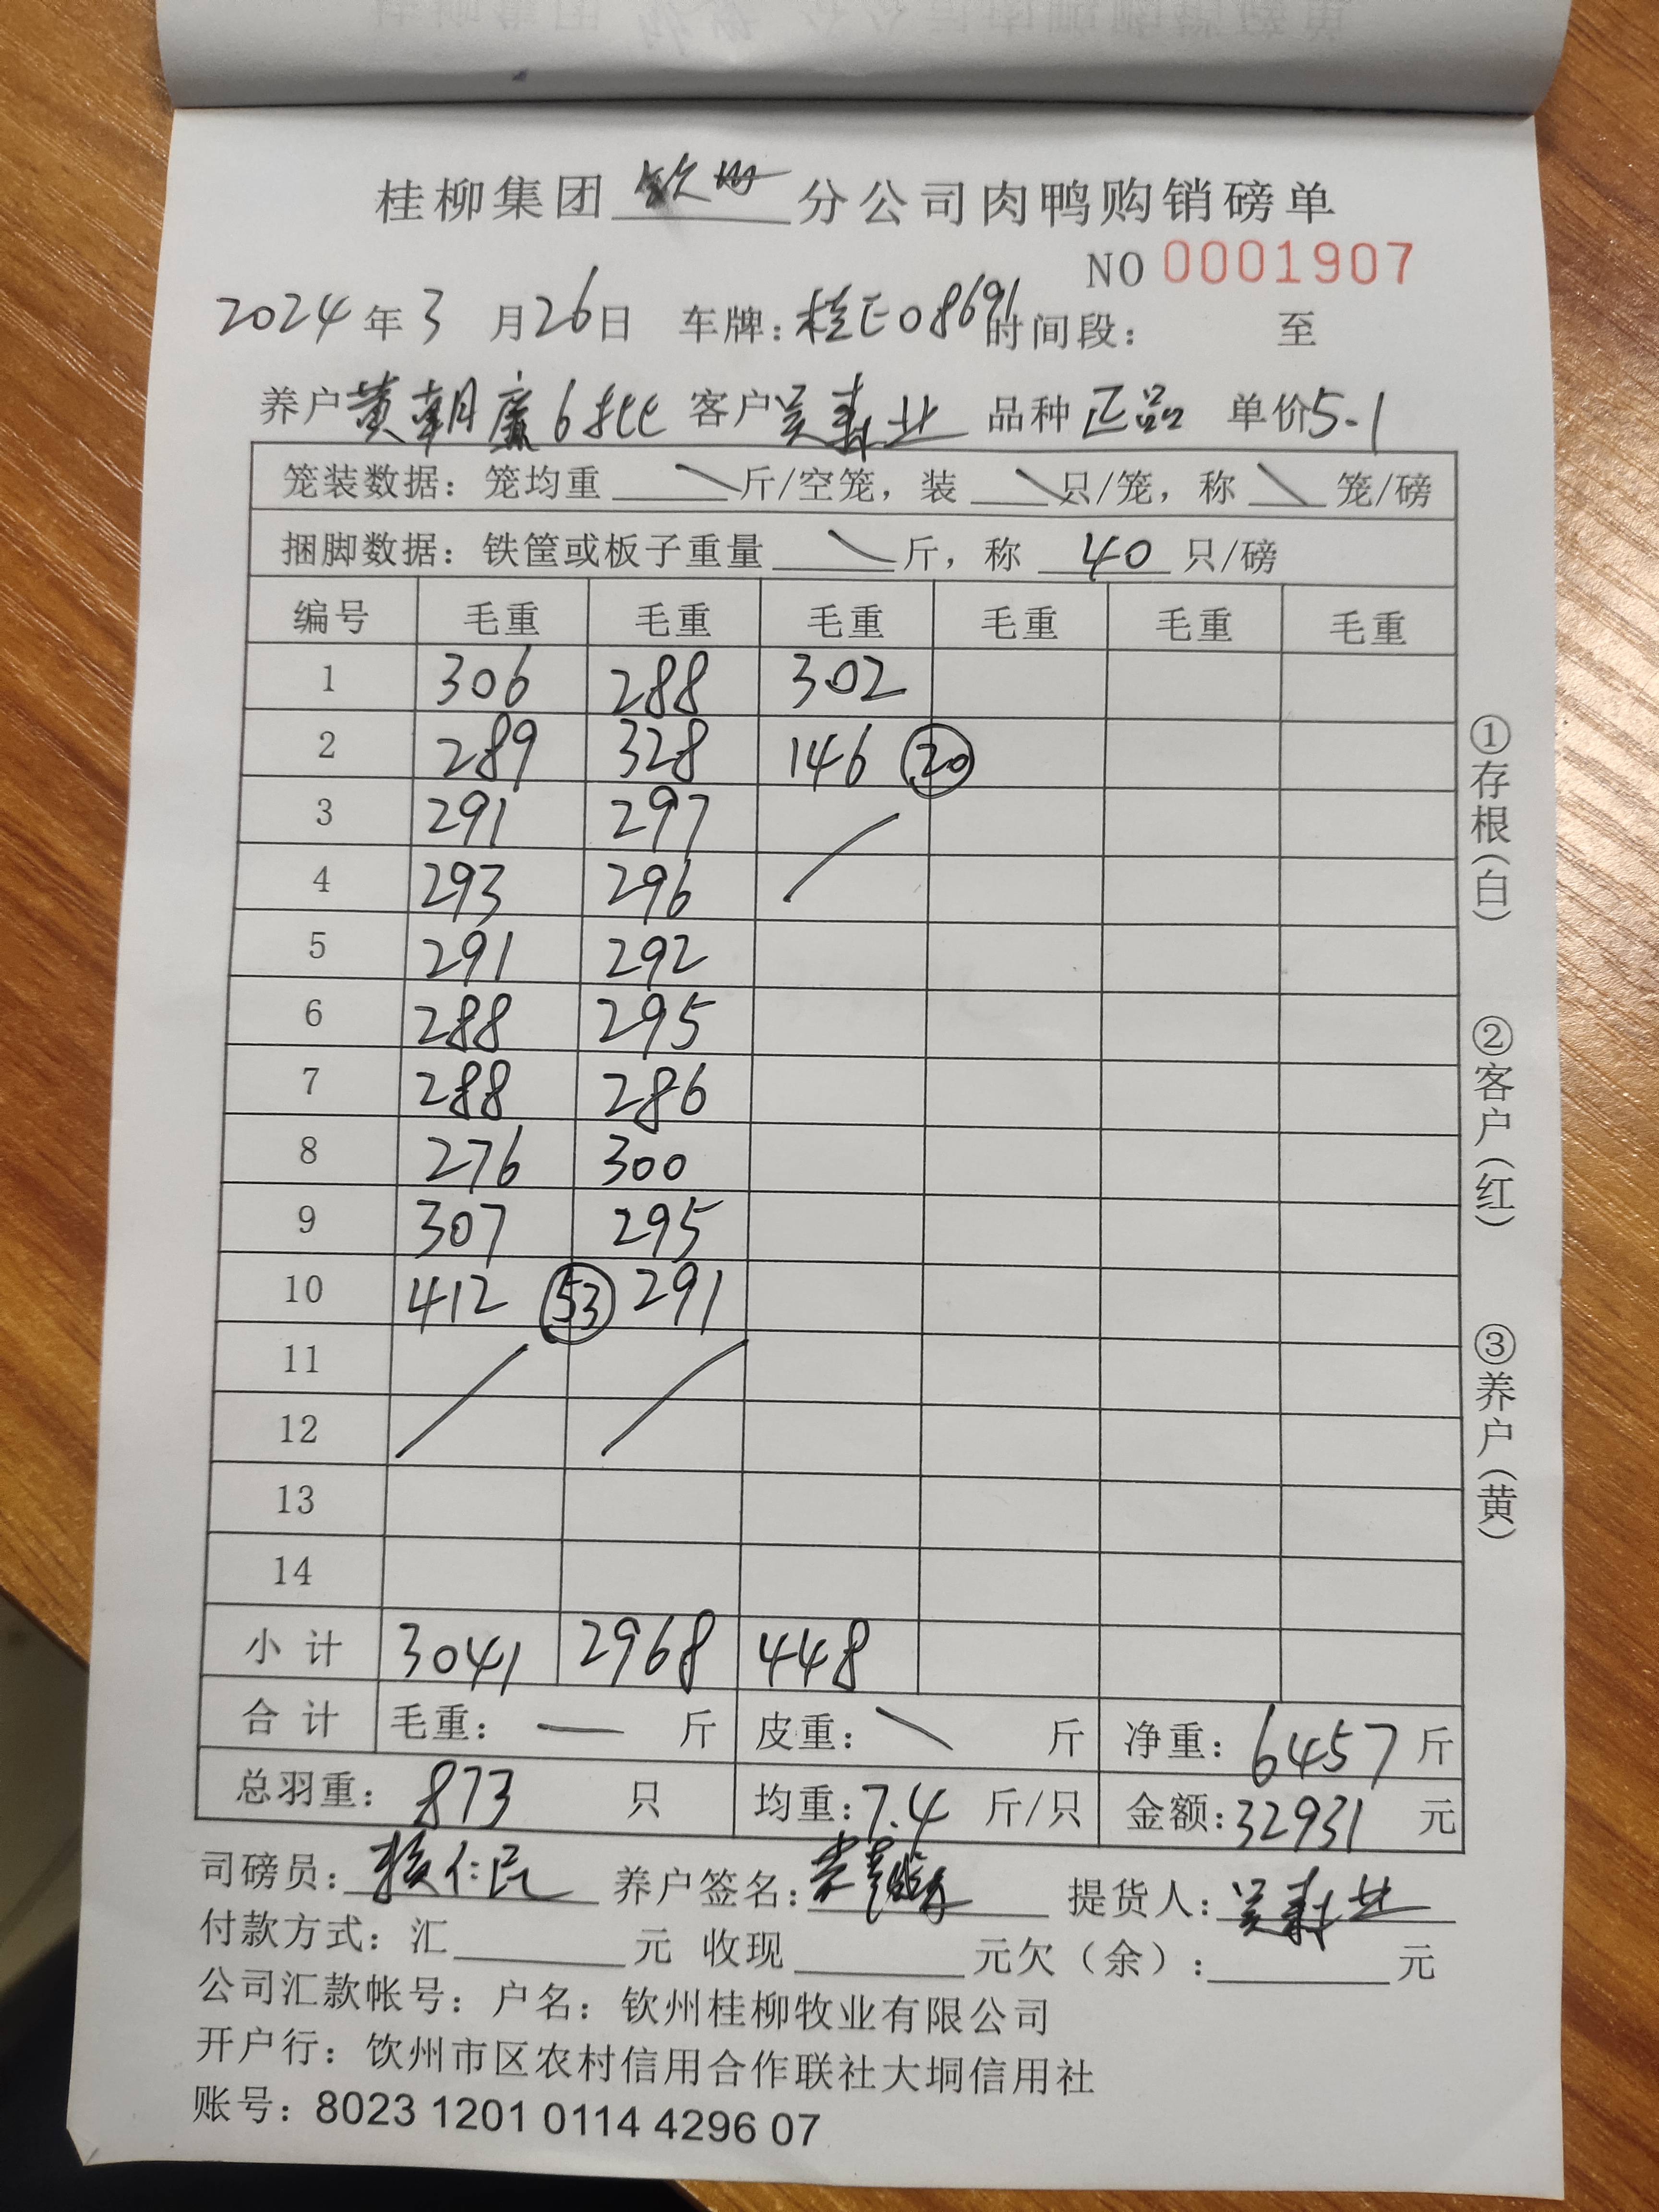 桂柳集团 钦州 分公司肉鸭购销磅单
NO 0001907
2024 年 3 月 26 日 车牌：桂E08691 时间段： 至
养户 黄朝廉6批 客户 吴寿业 品种 正品 单价 5.1
笼装数据：笼均重 \ 斤/空笼，装 \ 只/笼，称 \ 笼/磅
捆脚数据：铁筐或板子重量 \ 斤，称 40 只/磅
编号 毛重 毛重 毛重 毛重 毛重 毛重
1 306 288 302
2 289 328 146 ⑳
3 291 297 /
4 293 296
5 291 292
6 288 295
7 288 286
8 276 300
9 307 295
10 412 (53) 291
11 / /
12
13
14
小计 3041 2968 448
合计 毛重： — 斤 皮重： \ 斤 净重：6457 斤
总羽重：873 只 均重：7.4 斤/只 金额：32931 元
司磅员：赖仁民 养户签名： 提货人：吴寿业
付款方式：汇 元 收现 元欠（余）： 元
公司汇款帐号：户名：钦州桂柳牧业有限公司
开户行：饮州市区农村信用合作联社大垌信用社
账号：8023 1201 0114 4296 07
①存根（白）
②客户（红）
③养户（黄）